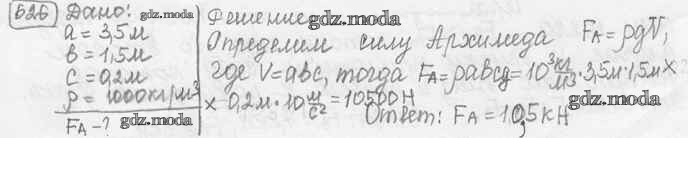 626 Дано: gdz.moda
a = 3,5м
b = 1,5м
c = 0,2м
ρ = 1000кг/м³
FA - ? gdz.moda
Решение gdz.moda
Определим силу Архимеда FA = ρgV,
где V = abc, тогда FA = ρabcg = 10³ кг/м³ · 3,5м · 1,5м ×
× 0,2м · 10 м/с² = 10500Н gdz.moda
Ответ: FA = 10,5 кН